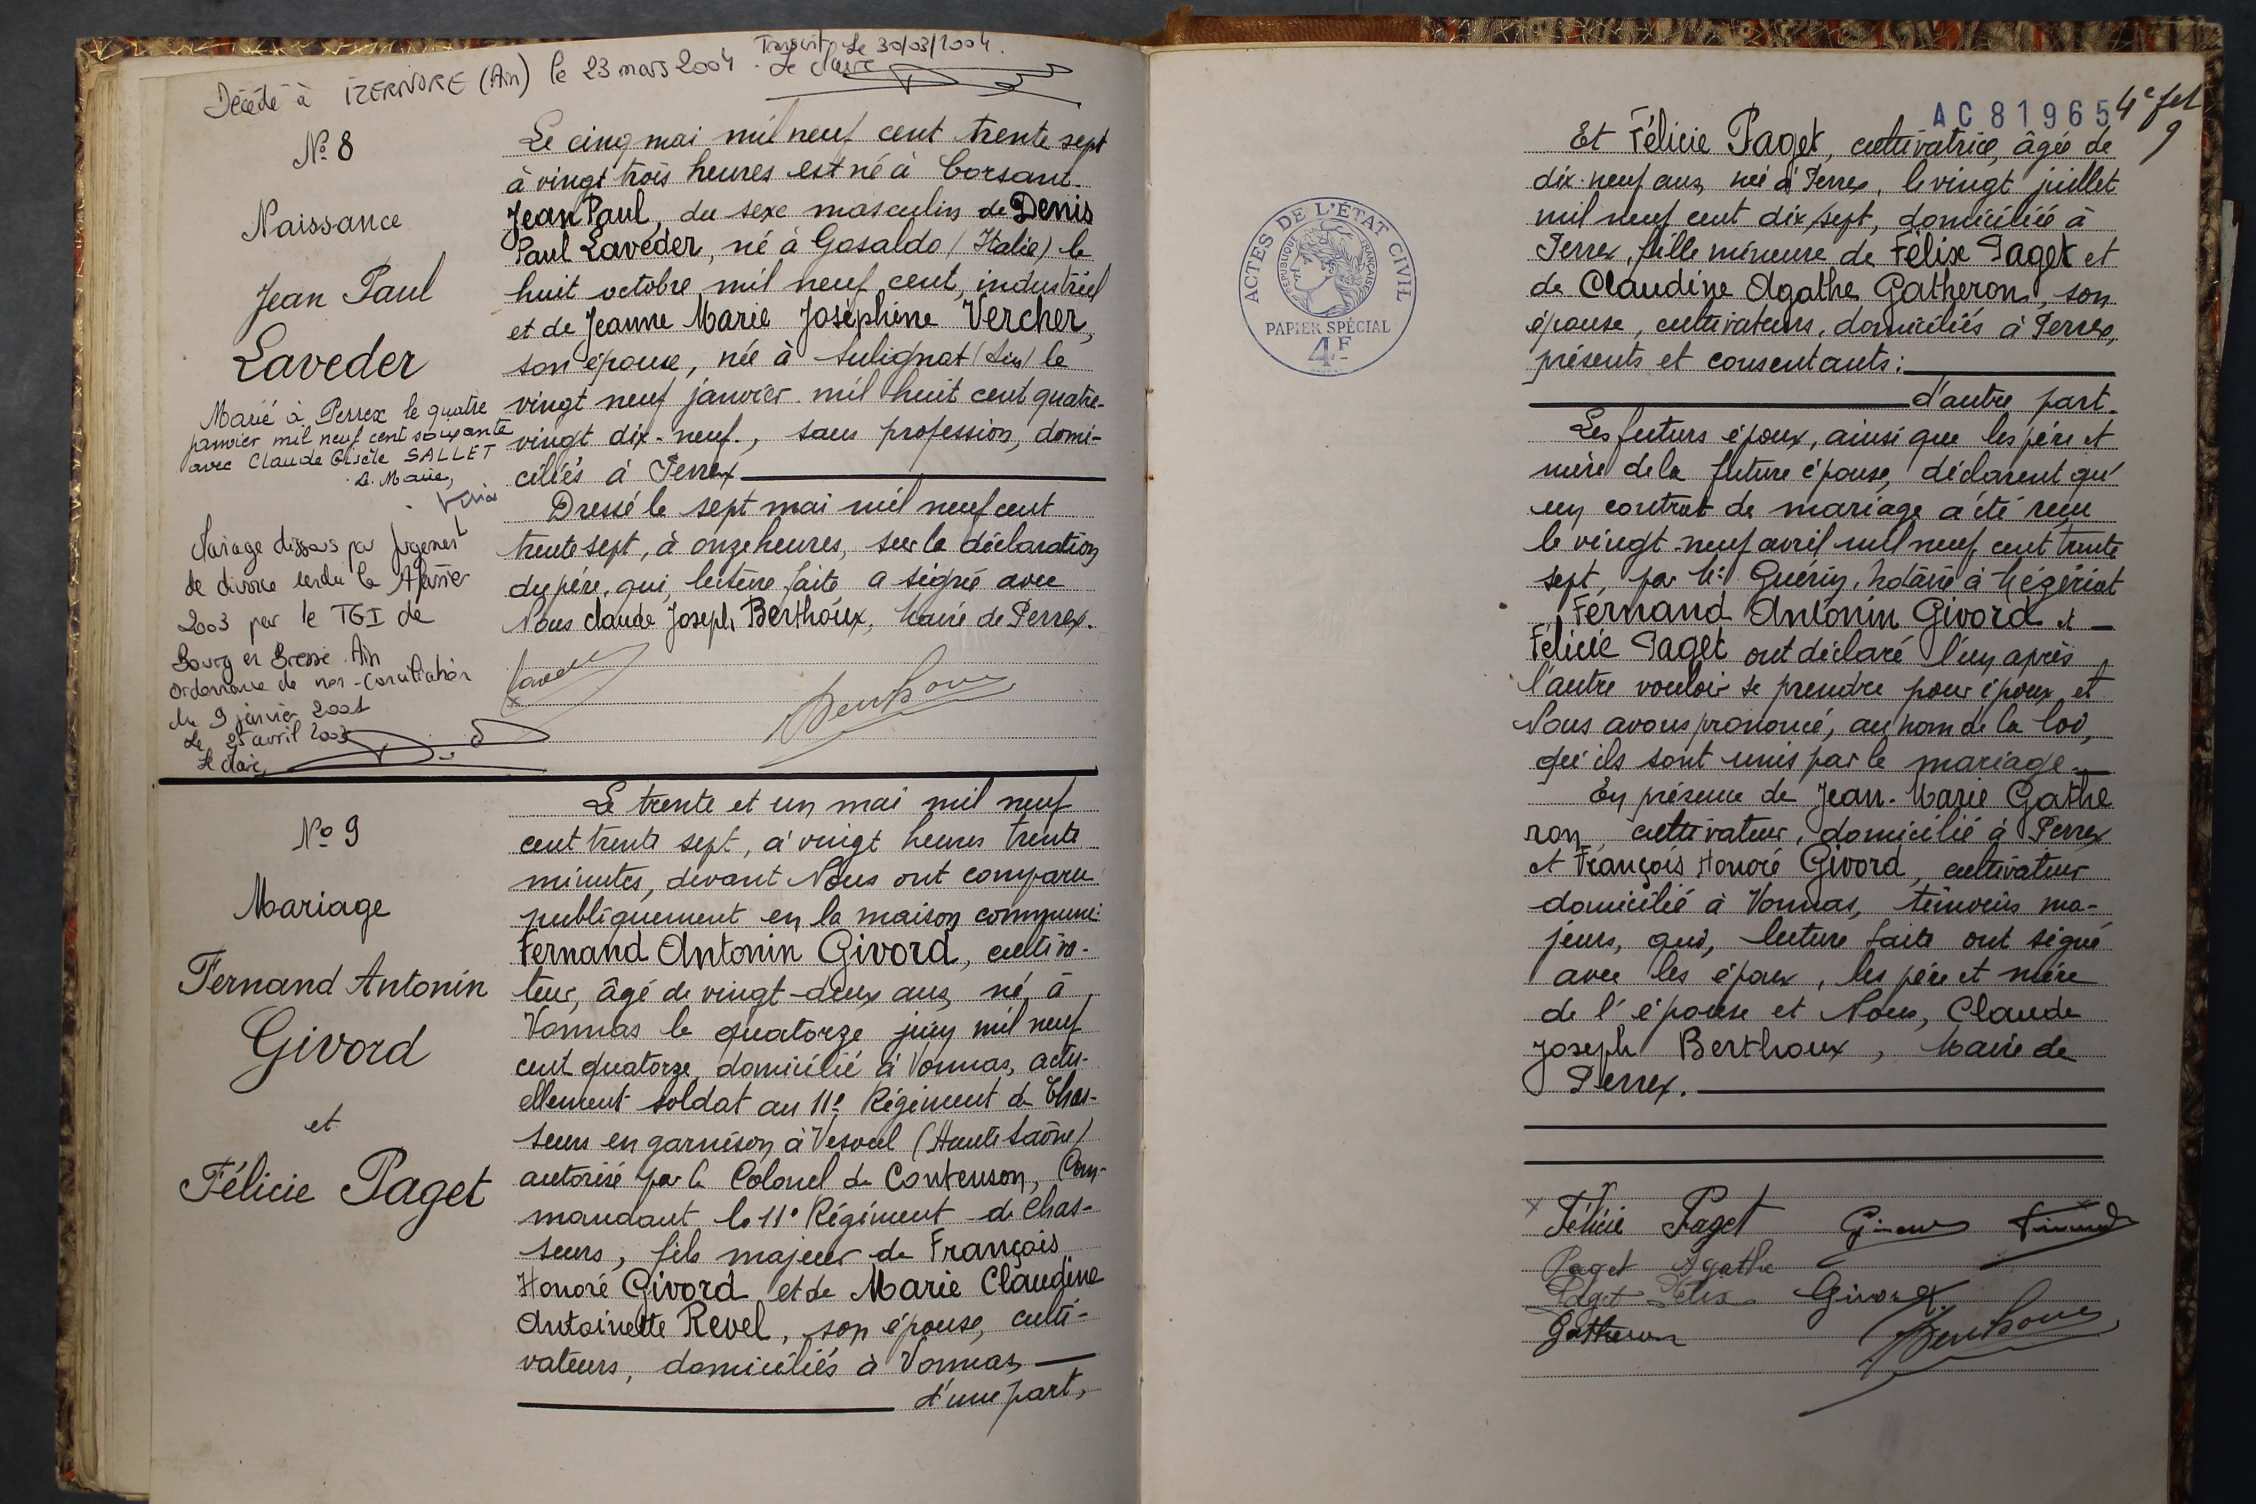 Décédé à IZERNORE (Ain) le 23 mars 2004. Transcrit le 30/03/2004.
Le Maire
Nº 8
Naissance
Jean Paul
Laveder
Marié à Perrex le quatre
janvier mil neuf cent soixante
avec Claude Gisèle SALLET
Le Maire,
Mariage dissous par jugement
de divorce rendu le janvier
2003 par le TGI de
Bourg en Bresse Ain
ordonnance de non-conciliation
du 9 janvier 2001
Le 25 avril 2003
Le Maire,
Le cinq mai mil neuf cent trente sept
à vingt trois heures est né à Corsant.
Jean Paul, du sexe masculin de Denis
Paul Laveder, né à Gosaldo (Italie) le
huit octobre mil neuf cent, industriel
et de Jeanne Marie Joséphine Vercher,
son épouse, née à Sulignat (Ain) le
vingt neuf janvier mil huit cent quatre-
vingt dix-neuf, sans profession, domi-
ciliés à Perrex
Dressé le sept mai mil neuf cent
trente sept, à onze heures, sur la déclaration
du père, qui, lecture faite a signé avec
Nous Claude Joseph Berthoux, Maire de Perrex.
Laveder
Berthoux
Nº 9
Mariage
Fernand Antonin
Givord
et
Félicie Paget
Le trente et un mai mil neuf
cent trente sept, à vingt heures trente
minutes, devant Nous ont comparu
publiquement en la maison commune:
Fernand Antonin Givord, cultiva-
teur, âgé de vingt-deux ans, né à
Vonnas le quatorze juin mil neuf
cent quatorze, domicilié à Vonnas, actu-
ellement soldat au 11e Régiment de Chas-
seurs en garnison à Vesoul (Haute Saône)
autorisé par le Colonel de Contenson, Com-
mandant le 11e Régiment de Chas-
seurs, fils majeur de François
Honoré Givord et de Marie Claudine
Antoinette Revel, son épouse, culti-
vateurs, domiciliés à Vonnas
d'une part,
AC 81965
4e fet
9
ACTES DE L'ÉTAT CIVIL
RÉPUBLIQUE FRANÇAISE
PAPIER SPÉCIAL
4F
Et Félicie Paget, cultivatrice, âgée de
dix-neuf ans, née à Perrex, le vingt juillet
mil neuf cent dix sept, domiciliée à
Perrex, fille mineure de Félix Paget et
de Claudine Agathe Gatheron, son
épouse, cultivateurs, domiciliés à Perrex,
présents et consentants:
d'autre part.
Les futurs époux, ainsi que les père et
mère de la future épouse, déclarent qu'
un contrat de mariage a été reçu
le vingt-neuf avril mil neuf cent trente
sept, par Me Guérin, notaire à Mézériat
Fernand Antonin Givord et
Félicie Paget ont déclaré l'un après
l'autre vouloir se prendre pour époux, et
Nous avons prononcé, au nom de la loi,
qu'ils sont unis par le mariage.
En présence de Jean-Marie Gathe
ron, cultivateur, domicilié à Perrex
et François Honoré Givord, cultivateur
domicilié à Vonnas, témoins ma-
jeurs, qui, lecture faite ont signé
avec les époux, les père et mère
de l'épouse et Nous, Claude
Joseph Berthoux, Maire de
Perrex.
Félicie Paget Givord
Paget Agathe
Paget Félix Givord
Gatheron Berthoux